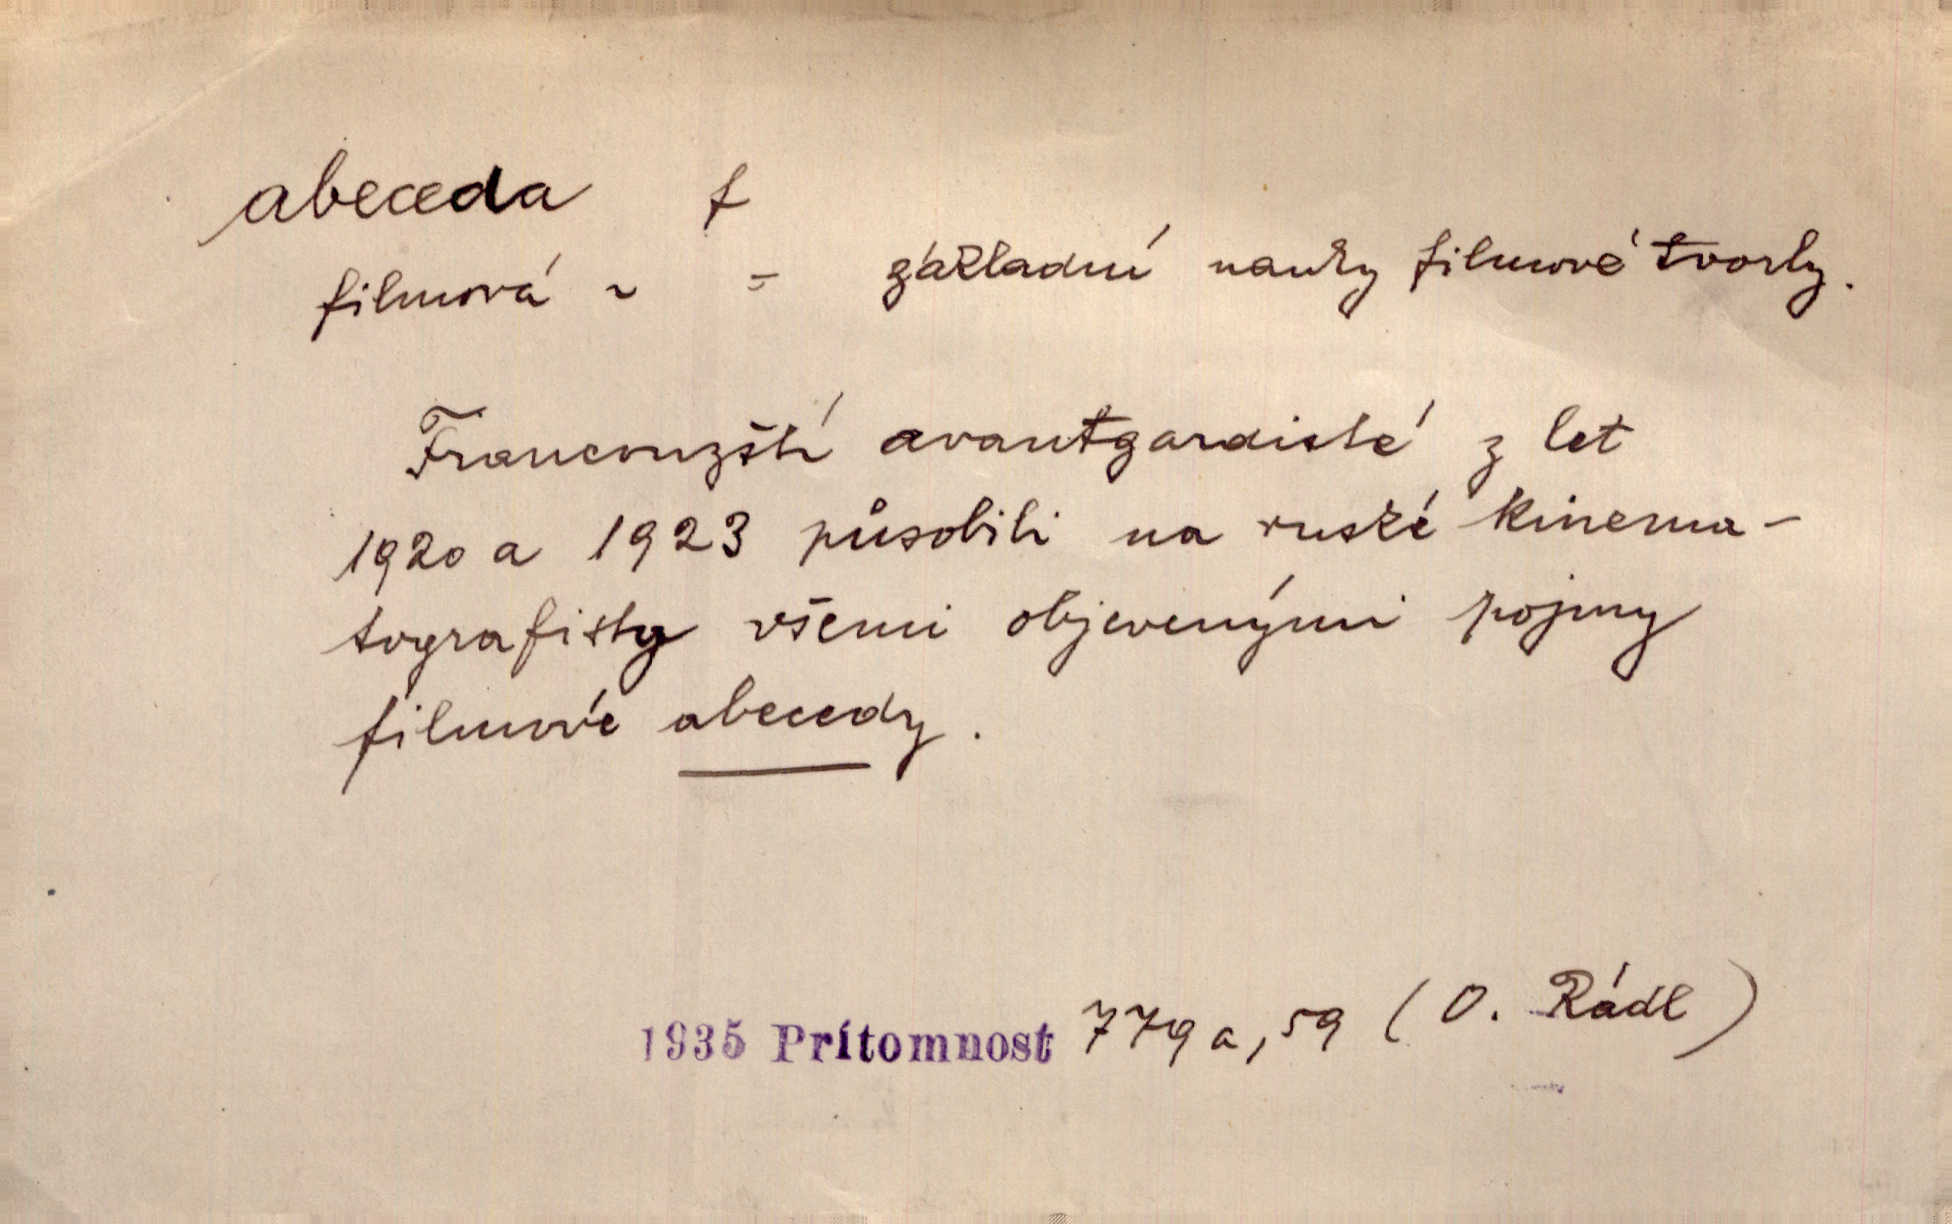 abeceda f
filmová ~ = základní nauky filmové tvorby.
Francouzští avantgardisté z let
1920 a 1923 působili na ruské kinema-
tografisty všemi objevenými pojmy
filmové abecedy.
1935 Prítomnost 779a, 59 (O. Rádl)